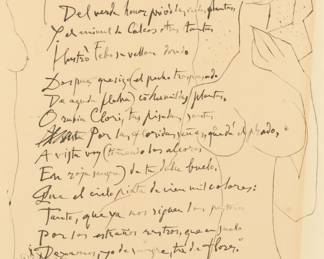 Del verde honor privó las verdes plantas
Y al animal de Colcos otras tantas
Ilustrò Febo su vellon dorado
Despues que sigo (el pecho traspasado
De aguda flecha) con humildes plantas,
O rubia Clori, tus pisadas santas
Por las floridas señas, que da el prado,
A vista voy (tiñendo los alcores
En roja sangre) de tu dulce buelo.
Que el cielo pinta de cien mil colores:
Tanto, que ya nos siguen los pastores
Por los estraños rastros, que en el suelo
Dexamos, yo de sangre, tu de flores."